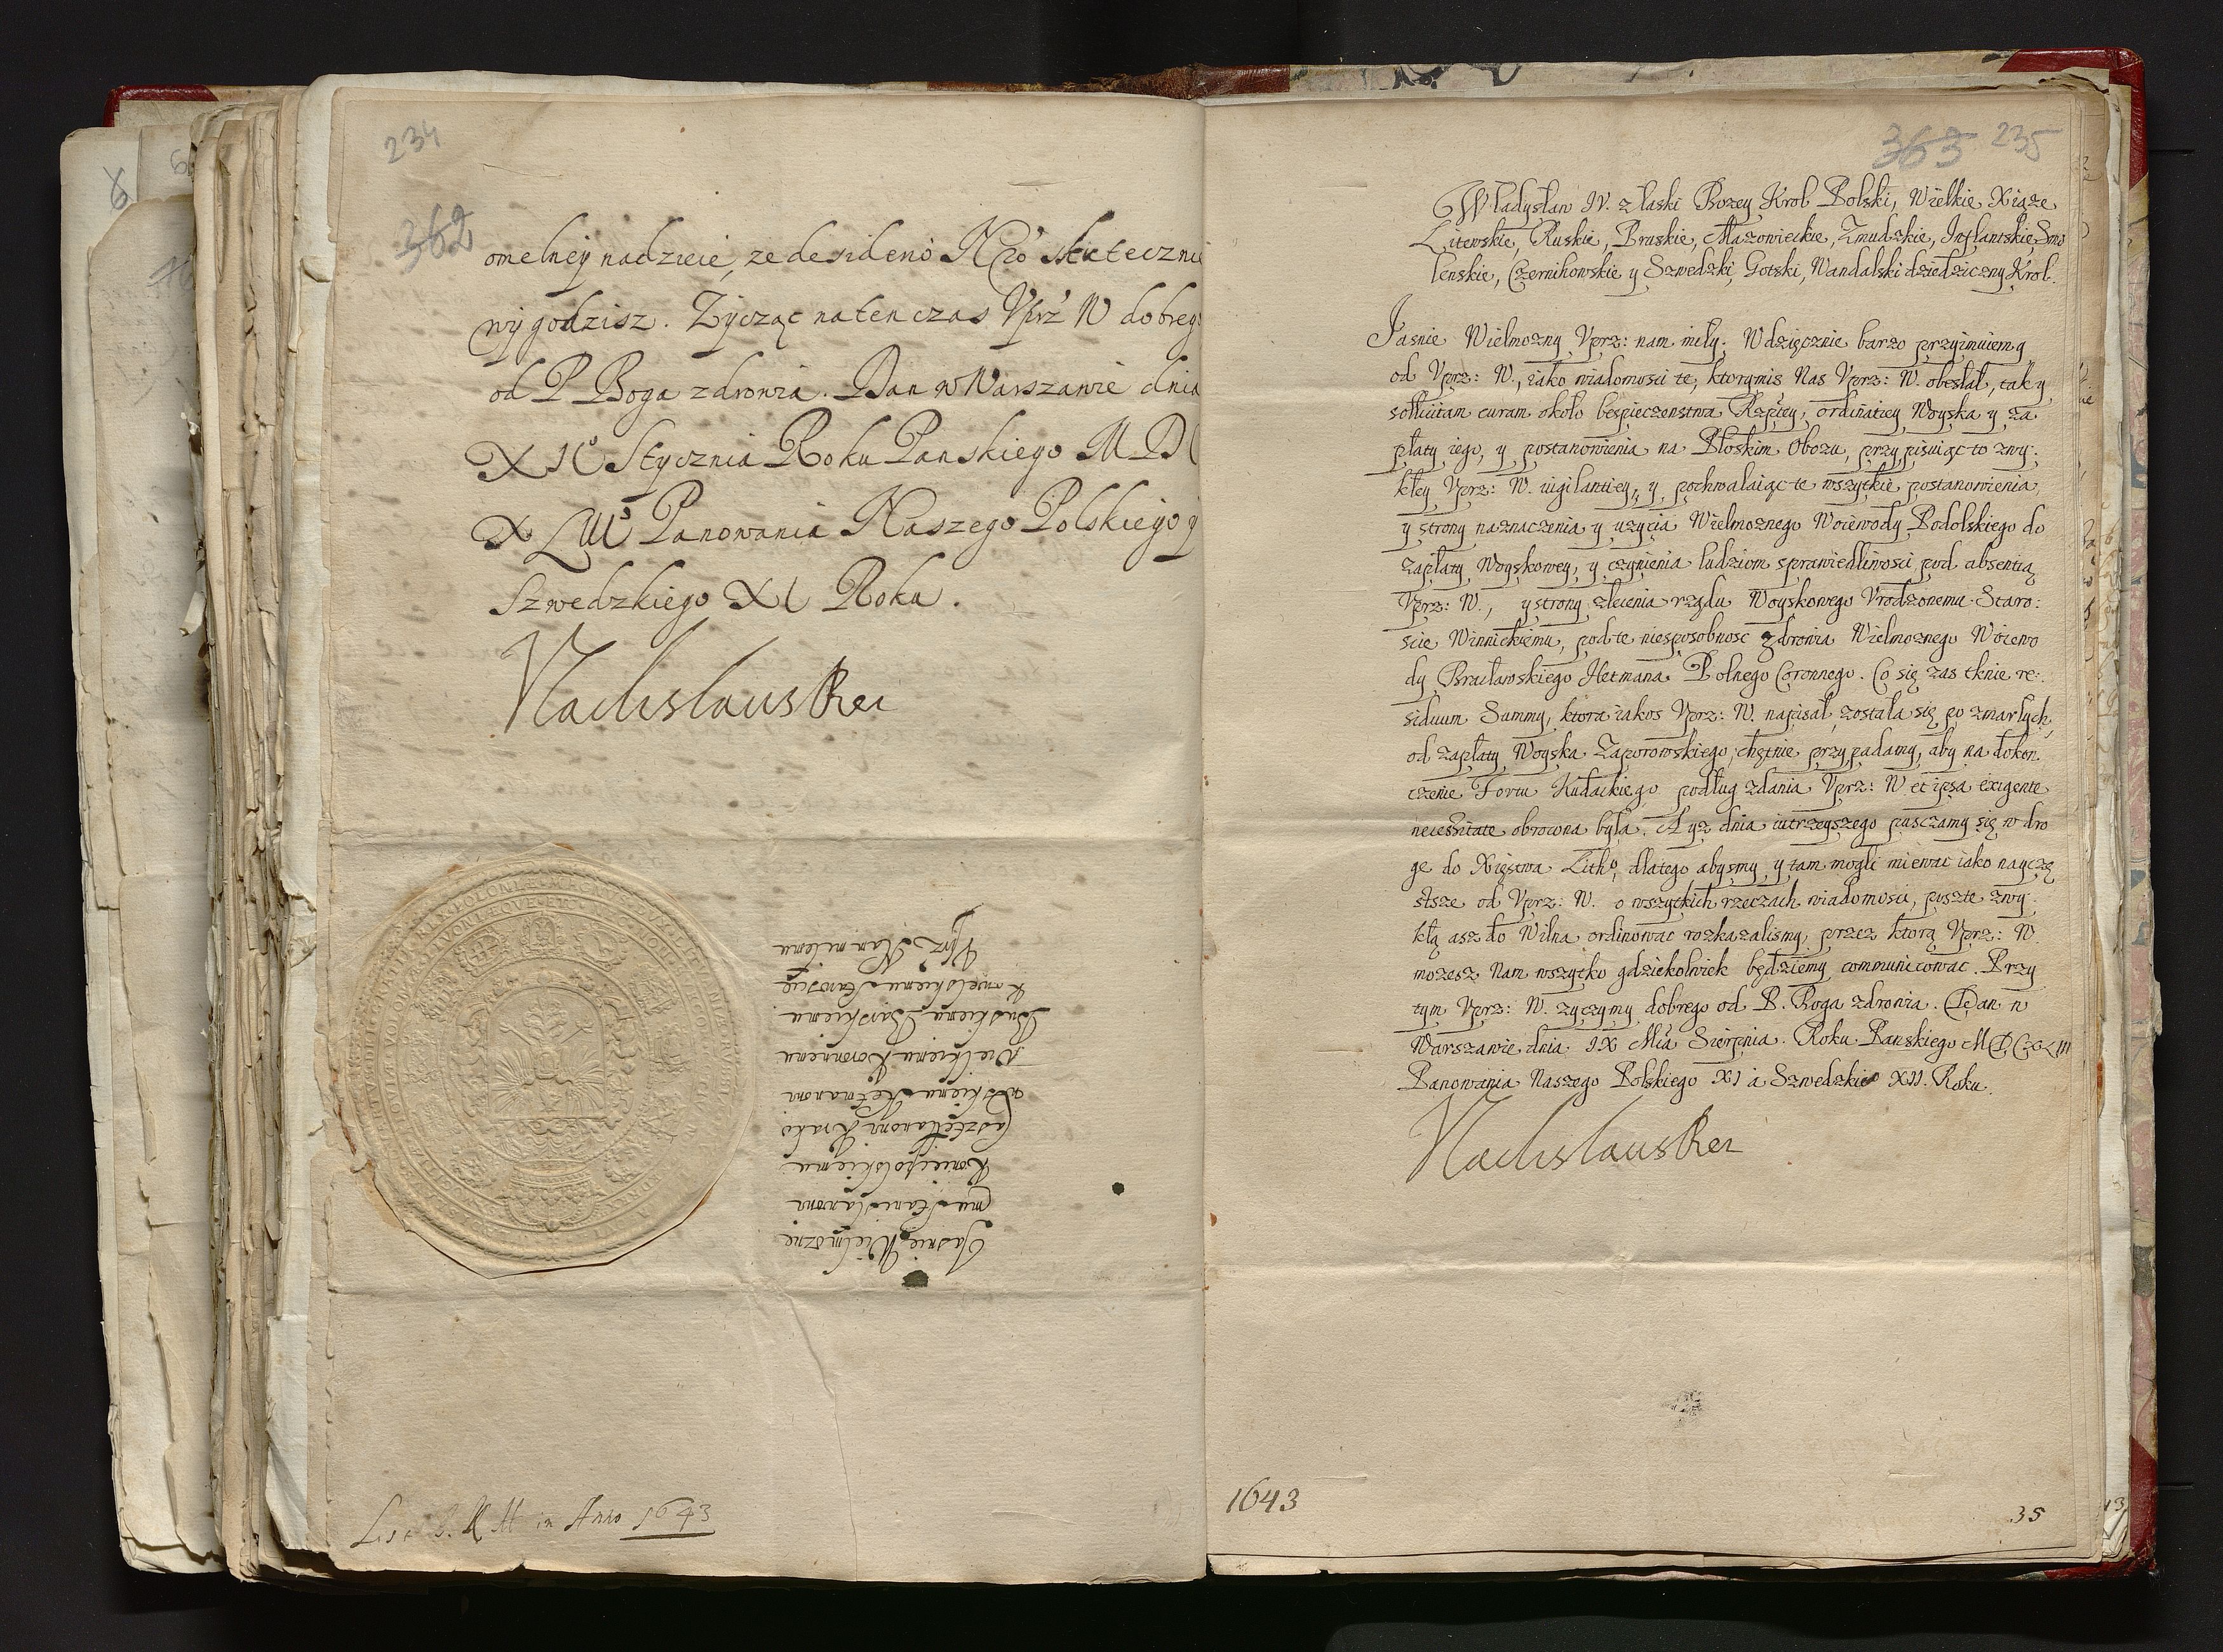 234
362
omelney nadzieie, ze desiderio N\[ro\] skutecznie
wygodzisz. Zycząc na ten czas Vprz W dobrego
od P Boga zdrowia. Dan w Warszawie dnia
Stycznia Roku Panskiego M D C
X L III Panowania Naszego Polskiego y
Szwedzkiego XI Roku.
Vladislaus Rex
Jasnie Wielmozne
mu Stanisławowi
Koniecpolskiemu
Casztellanowi Krako
wskiemu Hetmanowi
Wielkiemu Koronnemu
Buskiemu Barskiemu
Kowelskiemu Staroscie
Vprz Nam miłemu
List J. K M in Anno 1643
363 235
Władysław IV. z łaski Bozey Krol Polski, Wielkie Xiąze
Litewskie, Ruskie, Pruskie, Mazowieckie, Zmudzkie, Inflantskie Smo
lenskie, Czernihowskie y Szwedzki, Gotski, Wandalski dziedziczny Krol.
Jasnie Wielmozny Vprz: nam miły. Wdzięcznie barzo przyimuiemy
od Vprz: W., iako wiadomosci te, ktorymis Nas Vprz: W. obesłał, tak y
sollicitam curam około bespieczenstwa Rzptey, ordinatiey Woyska y za
płaty iego, y postanowienia na Płoskim Obozu, przypisuiąc to zwy:
kłey Vprz: W. vigilantiey, y pochwalaiąc te wszytkie postanowienia,
y strony naznaczenia y uzycia Wielmoznego Woiewody Podolskiego do
zapłaty Woyskowey, y czynienia ludziom sprawiedliwosci pod absentią
Vprz: W., y strony zlecenia rządu Woyskowego Vrodzonemu Staro:
scie Winnickiemu, pod te niesposobnosc zdrowia Wielmoznego Woiewo
dy Bracławskiego Hetmana Polnego Coronnego. Co się zas tknie re:
siduum Summy, ktora iakos Vprz: W. napisał, została się po zmarłych,
od zapłaty Woyska Zaporowskiego, chętnie przypadamy, aby na dokon
czenie Fortu Kudackiego podług zdania Vprz: W. et ipsa exigente
necessitate obrocona była. A yz dnia iutrzeyszego pusczamy się w dro
gę do Xięstwa Litho, dlatego abysmy y tam mogli miewac iako nayczę
stsze od Vprz: W. o wszytkich rzeczach wiadomosci, poszte zwy
kłą asz do Wilna ordinowac rozkazalismy, przez ktorą Vprz: W.
mozesz Nam wszytko gdziekolwiek będziemy communicowac. Przy
tym Vprz: W. zyczymy dobrego od P. Boga zdrowia. Dan w
Warszawie dnia IX Mca Sierpnia. Roku Panskiego MDCXLIII
Panowania Naszego Polskiego XI a Szwedzkie XII. Roku.
Vladislaus Rex
1643
35